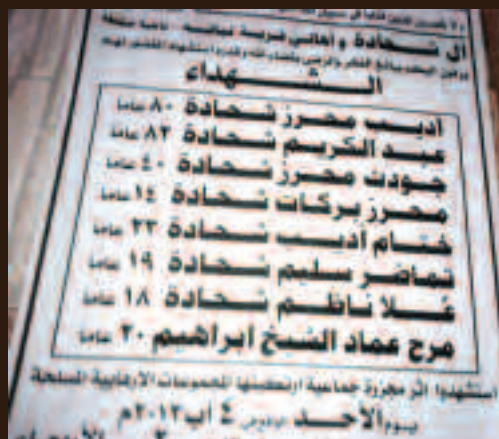 آل شحادة و أهالي قرية
الشهداء
أديب محرز شحادة ٨٠ عاما
عبد الكريم شحادة ٨٢ عاما
جودت محرز شحادة ٤٠ عاما
محرز بركات شحادة ١٤ عاما
ختام أديب شحادة ٣٣ عاما
تماضر سليم شحادة ١٩ عاما
علا ناظم شحادة ١٨ عاما
مرح عماد الشيخ ابراهيم ٢٠ عاما
استشهدوا اثر مجزرة جماعية ارتكبتها المجموعات الإرهابية المسلحة
يوم الأحد ٤ آب ٢٠١٣م